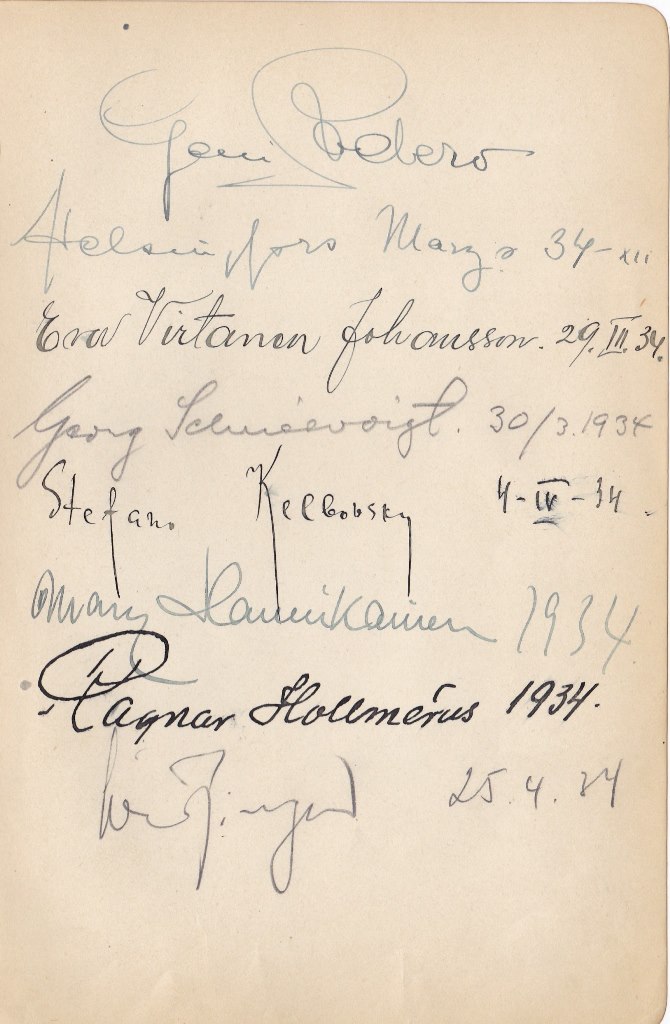 Geni Sadero
Helsingfors Marzo 34-XII
Eva Virtanen Johansson. 29.III.34.
Georg Schnéevoigt. 30/3.1934
Stefano 4-IV-34.
Mary Hannikainen 1934
Ragnar Hollmérus 1934.
25.4.34